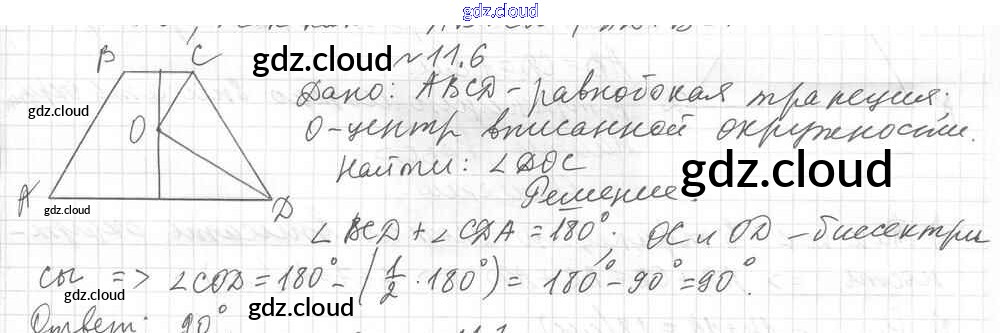 gdz.cloud
B C
gdz.cloud
№ 11.6
gdz.cloud
O
A
gdz.cloud
D
Дано: ABCD - равнобокая трапеция;
O - центр вписанной окружности.
Найти: ∠DOC
gdz.cloud
Решение.
∠BCD + ∠CDA = 180°; OC и OD - биссектри
сы => ∠COD = 180° - (1/2 · 180°) = 180° - 90° = 90°.
gdz.cloud
gdz.cloud
gdz.cloud
Ответ: 90°